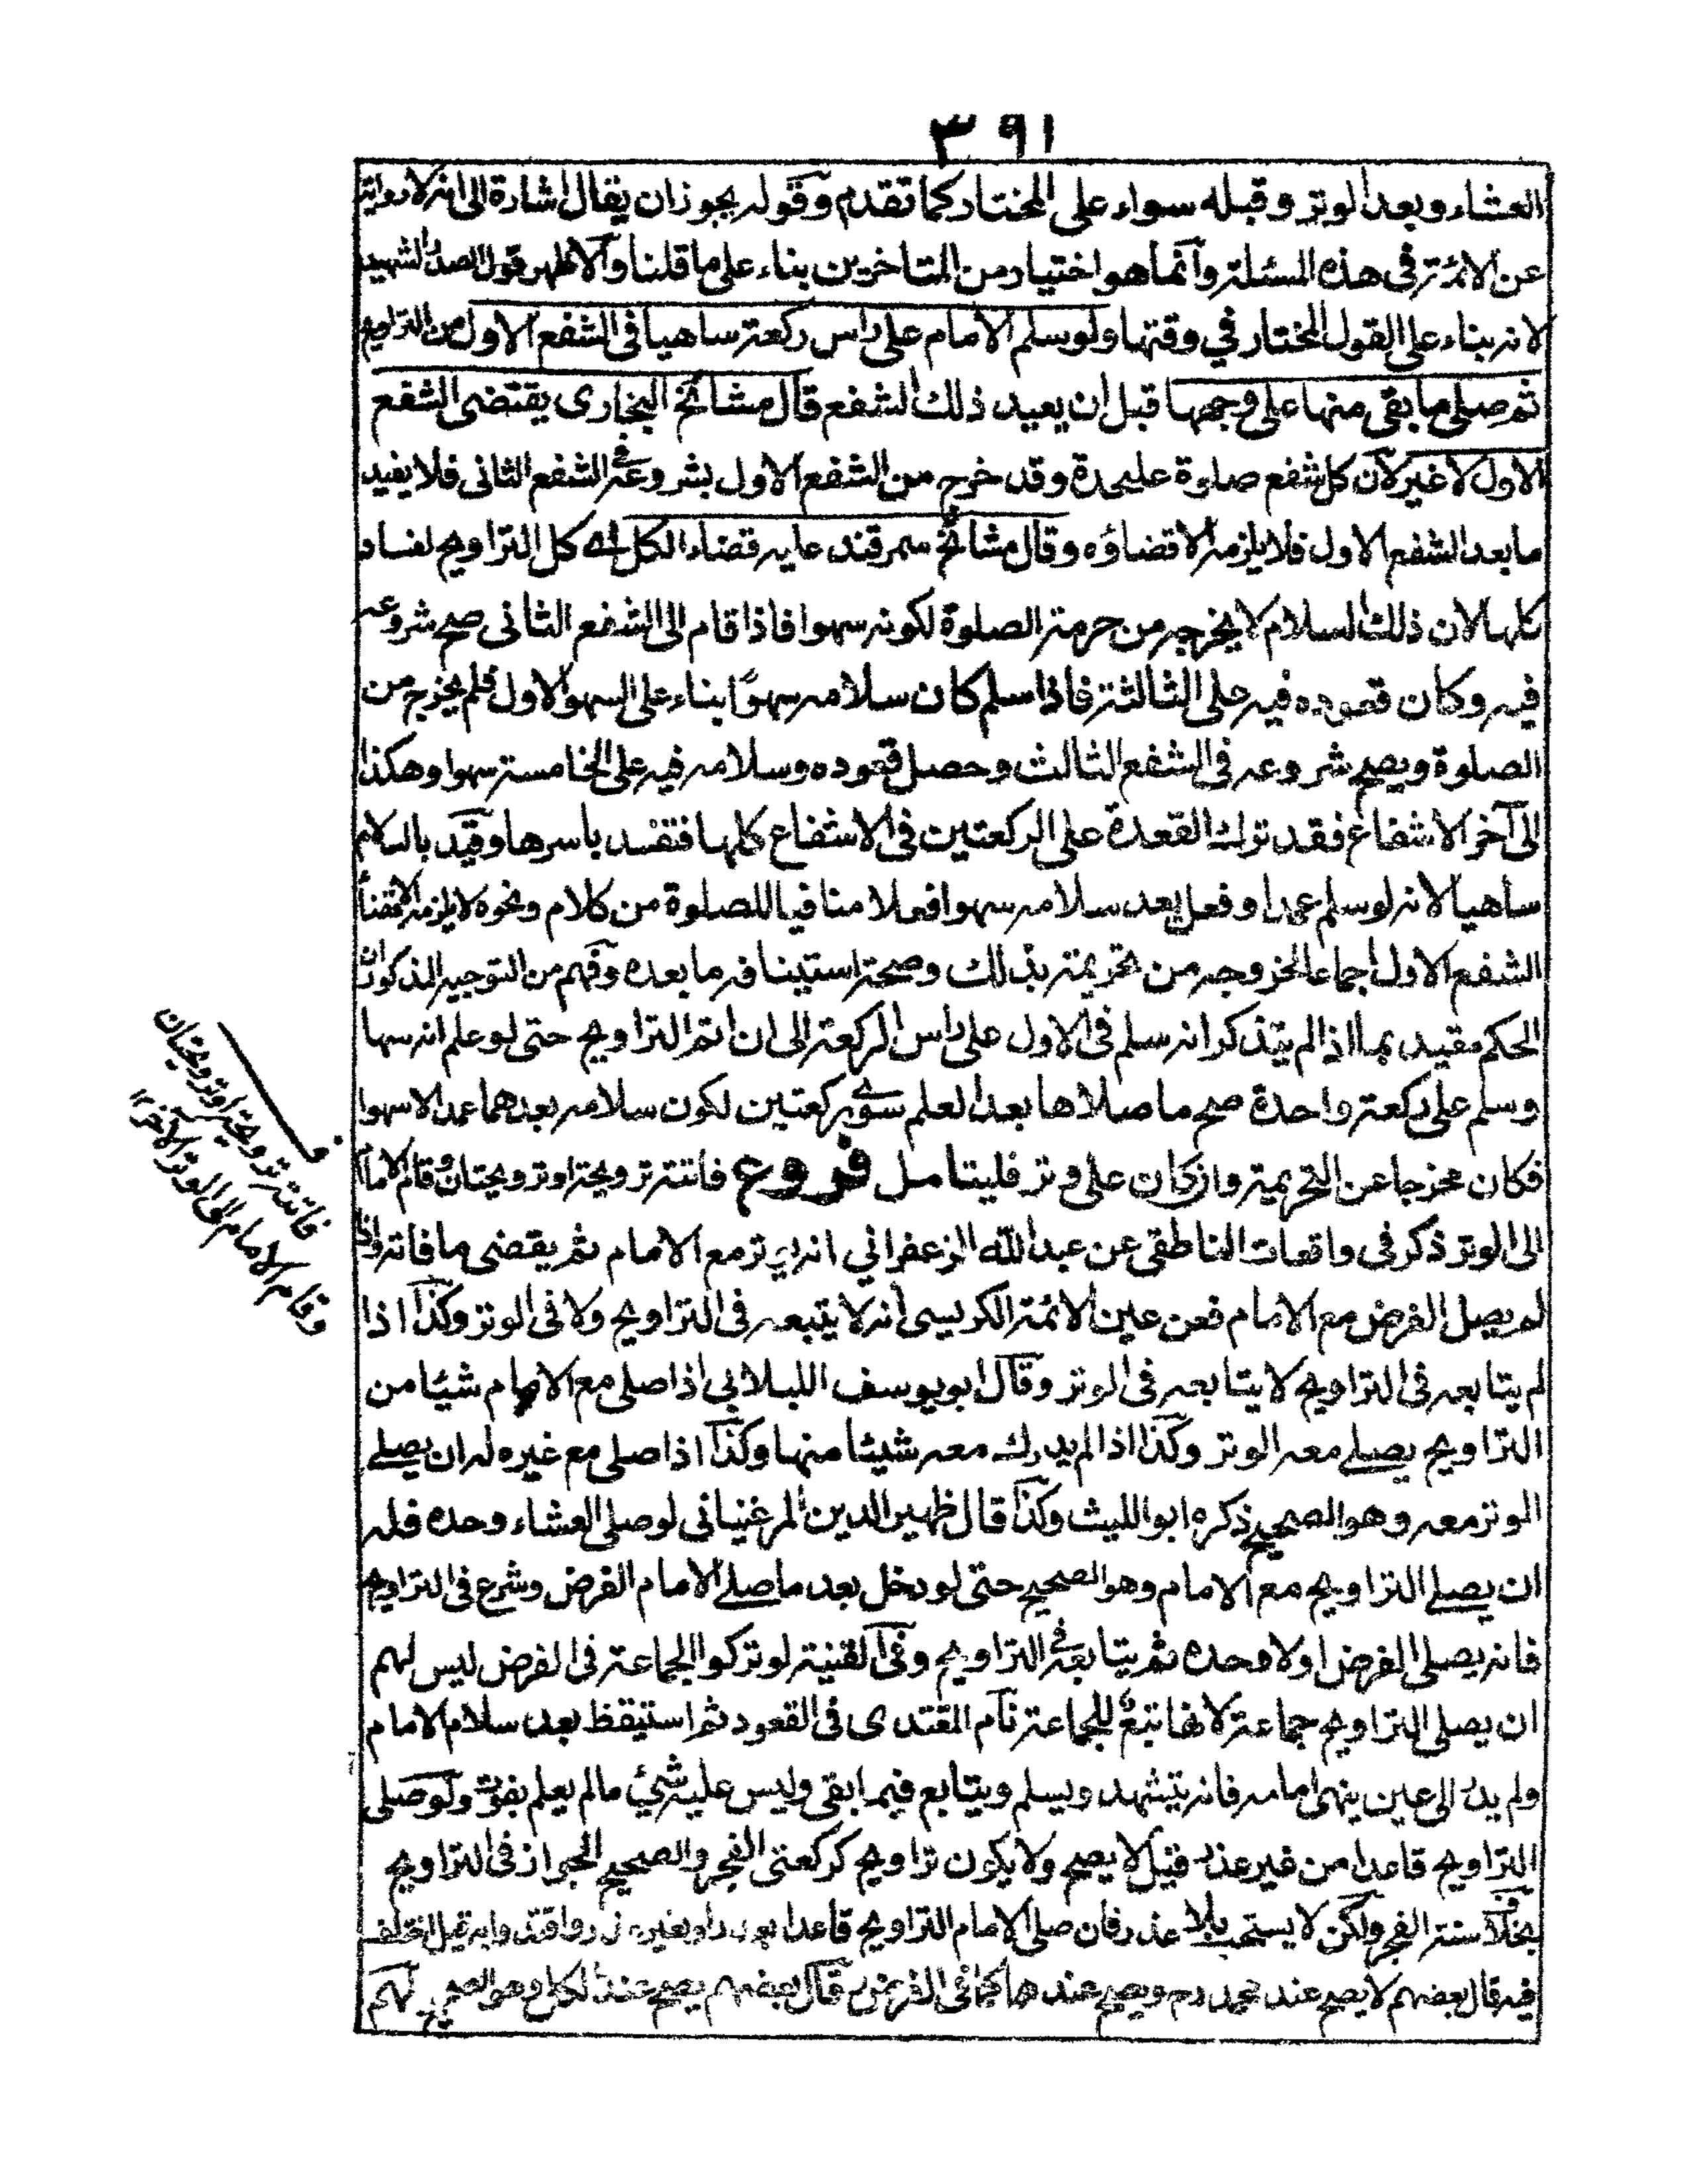 ٣٩١
العشاء وبعد الوتر وقبله سواء على المختار كما تقدم وقوله يجوز ان يقال اشارة الى انه لا رواية
عن الائمة فى هذه المسئلة وانما هو اختيار من المتاخرين بناء على ما قلنا والاظهر قول الصدر الشهيد
لانه بناء على القول المختار في وقتها ولو سلم الامام على راس ركعة ساهيا فى الشفع الاول من التراويح
ثم صلى ما بقى منها على وجهها قبل ان يعيد ذلك الشفع قال مشائخ البخارى يقتضى الشفع
الاول لا غير لان كل شفع صلوة عليحدة وقد خرج من الشفع الاول بشروعه فى الشفع الثانى فلا يفيد
ما بعد الشفع الاول فلا يلزمه الا قضاؤه وقال مشائخ سمرقند عليه قضاء الكل اے كل التراويح لفساد
كلها لان ذلك السلام لا يخرجه من حرمة الصلوة لكونه سهوا فاذا قام الى الشفع الثانى صح شروعه
فيه وكان قعوده فيه على الثالثة فاذا سلم كان سلامه سهوًا بناء على السهو الاول فلم يخرج من
الصلوة ويصح شروعه فى الشفع الثالث وحصل قعوده وسلامه فيه على الخامسة سهوا وهكذا
الى آخر الاشفاع فقد ترك القعدة على الركعتين فى الاشفاع كلها فتفسد باسرها وقيد بالسلام
ساهيا لانه لو سلم عمدا وفعل بعد سلامه سهوا فعلا منافيا للصلوة من كلام ونحوه لا يلزمه الا قضاء
الشفع الاول اجماعا لخروجه من تحريمة بذلك وصحة استينافه ما بعده وفهم من التوجيه المذكور ان
الحكم مقيد بما اذا لم يتذكر انه سلم فى الاول على راس الركعة الى ان اتم التراويح حتى لو علم انه سها
وسلم على ركعة واحدة صح ما صلاها بعد العلم سوے ركعتين لكون سلامه بعدهما عمدا لا سهوا
فكان مخرجا عن التحريمة وان كان على وتر فليتامل فروع فاتته ترويحة او ترويحتان وقام الامام
الى الوتر ذكر فى واقعات الناطقى عن عبد الله الزعفراني انه يوتر مع الامام ثم يقضى ما فاته واذا
لم يصل الفرض مع الامام فعن عين الائمة الكربيسى انه لا يتبعه فى التراويح ولا فى الوتر وكذا اذا
لم يتابعه فى التراويح لا يتابعه فى الوتر وقال ابو يوسف اللبلابي اذا صلى مع الامام شيئا من
التراويح يصلے معه الوتر وكذا اذا لم يدرك معه شيئا منها وكذا اذا صلى مع غيره له ان يصلے
الوتر معه وهو الصحيح ذكره ابو الليث وكذا قال ظهير الدين المرغينانى لو صلى العشاء وحده فله
ان يصلے التراويح مع الامام وهو الصحيح حتى لو دخل بعد ما صلے الامام الفرض وشرع فى التراويح
فانه يصلى الفرض اولا وحده ثم يتابعه فى التراويح وفى القنية لو تركوا الجماعة فى الفرض ليس لهم
ان يصلى التراويح جماعة لانها تبع للجماعة نام المقتدى فى القعود ثم استيقظ بعد سلام الامام
ولم يدر الى عين ينهى امامه فانه يتشهد ويسلم ويتابع فيما بقى وليس عليه شيئ مالم يعلم بفوت ولو صلى
التراويح قاعدا من غير عذر قيل لا يصح ولا يكون تراويح كركعتى الفجر والصحيح الجواز فى التراويح
بخلاف سنة الفجر ولكن لا يستحب بلا عذر فان صلى الامام التراويح قاعدا بعذر او بغيره
فيه قال بعضهم لا يصح عند محمد رح ويصح عندهما كما فى الفرض وقال بعضهم يصح عند الكل وهو الصحيح لهم
فاتته ترويحة او ترويحتان
وقام الامام الى الوتر